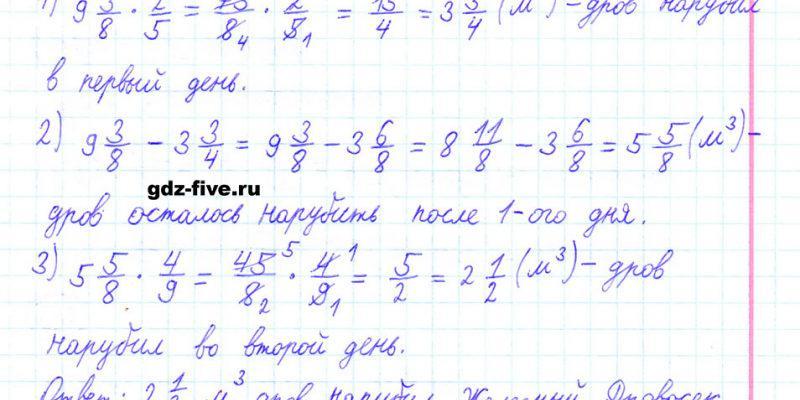 1) 9 3/8 · 2/5 = 75/8₄ · 2/5₁ = 15/4 = 3 3/4 (м³) – дров нарубил
в первый день.
2) 9 3/8 – 3 3/4 = 9 3/8 – 3 6/8 = 8 11/8 – 3 6/8 = 5 5/8 (м³) –
gdz-five.ru
дров осталось нарубить после 1-ого дня.
3) 5 5/8 · 4/9 = 45⁵/8₂ · 4¹/9₁ = 5/2 = 2 1/2 (м³) – дров
нарубил во второй день.
Ответ: 2 1/2 м³ дров нарубил Железный Дровосек